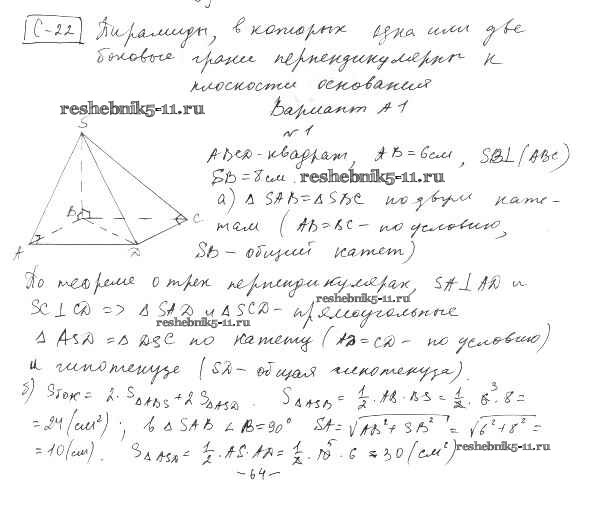 С-22 Пирамиды, в которых одна или две
боковые грани перпендикулярны к
плоскости основания
reshebnik5-11.ru
Вариант А1
№1
S
ABCD-квадрат, AB=6см, SB⊥(ABC)
SB=8см. reshebnik5-11.ru
а) △SAB=△SBC по двум кате-
там (AB=BC - по условию,
SB - общий катет)
B
C
A
D
По теореме о трех перпендикулярах, SA⊥AD и
reshebnik5-11.ru
SC⊥CD => △SAD и △SCD - прямоугольные
reshebnik5-11.ru
△ASD=△DSC по катету (AD=CD - по условию)
и гипотенузе (SD - общая гипотенуза).
б) Sбок = 2·S△ABS+2S△ASD. S△ASB=1/2·AB·BS=1/2·6³·8=
=24(см²); в △SAB ∠B=90° SA=√AB²+SB²=√6²+8²=
=10(см). S△ASD=1/2·AS·AD=1/2·10⁵·6=30(см²) reshebnik5-11.ru
-64-